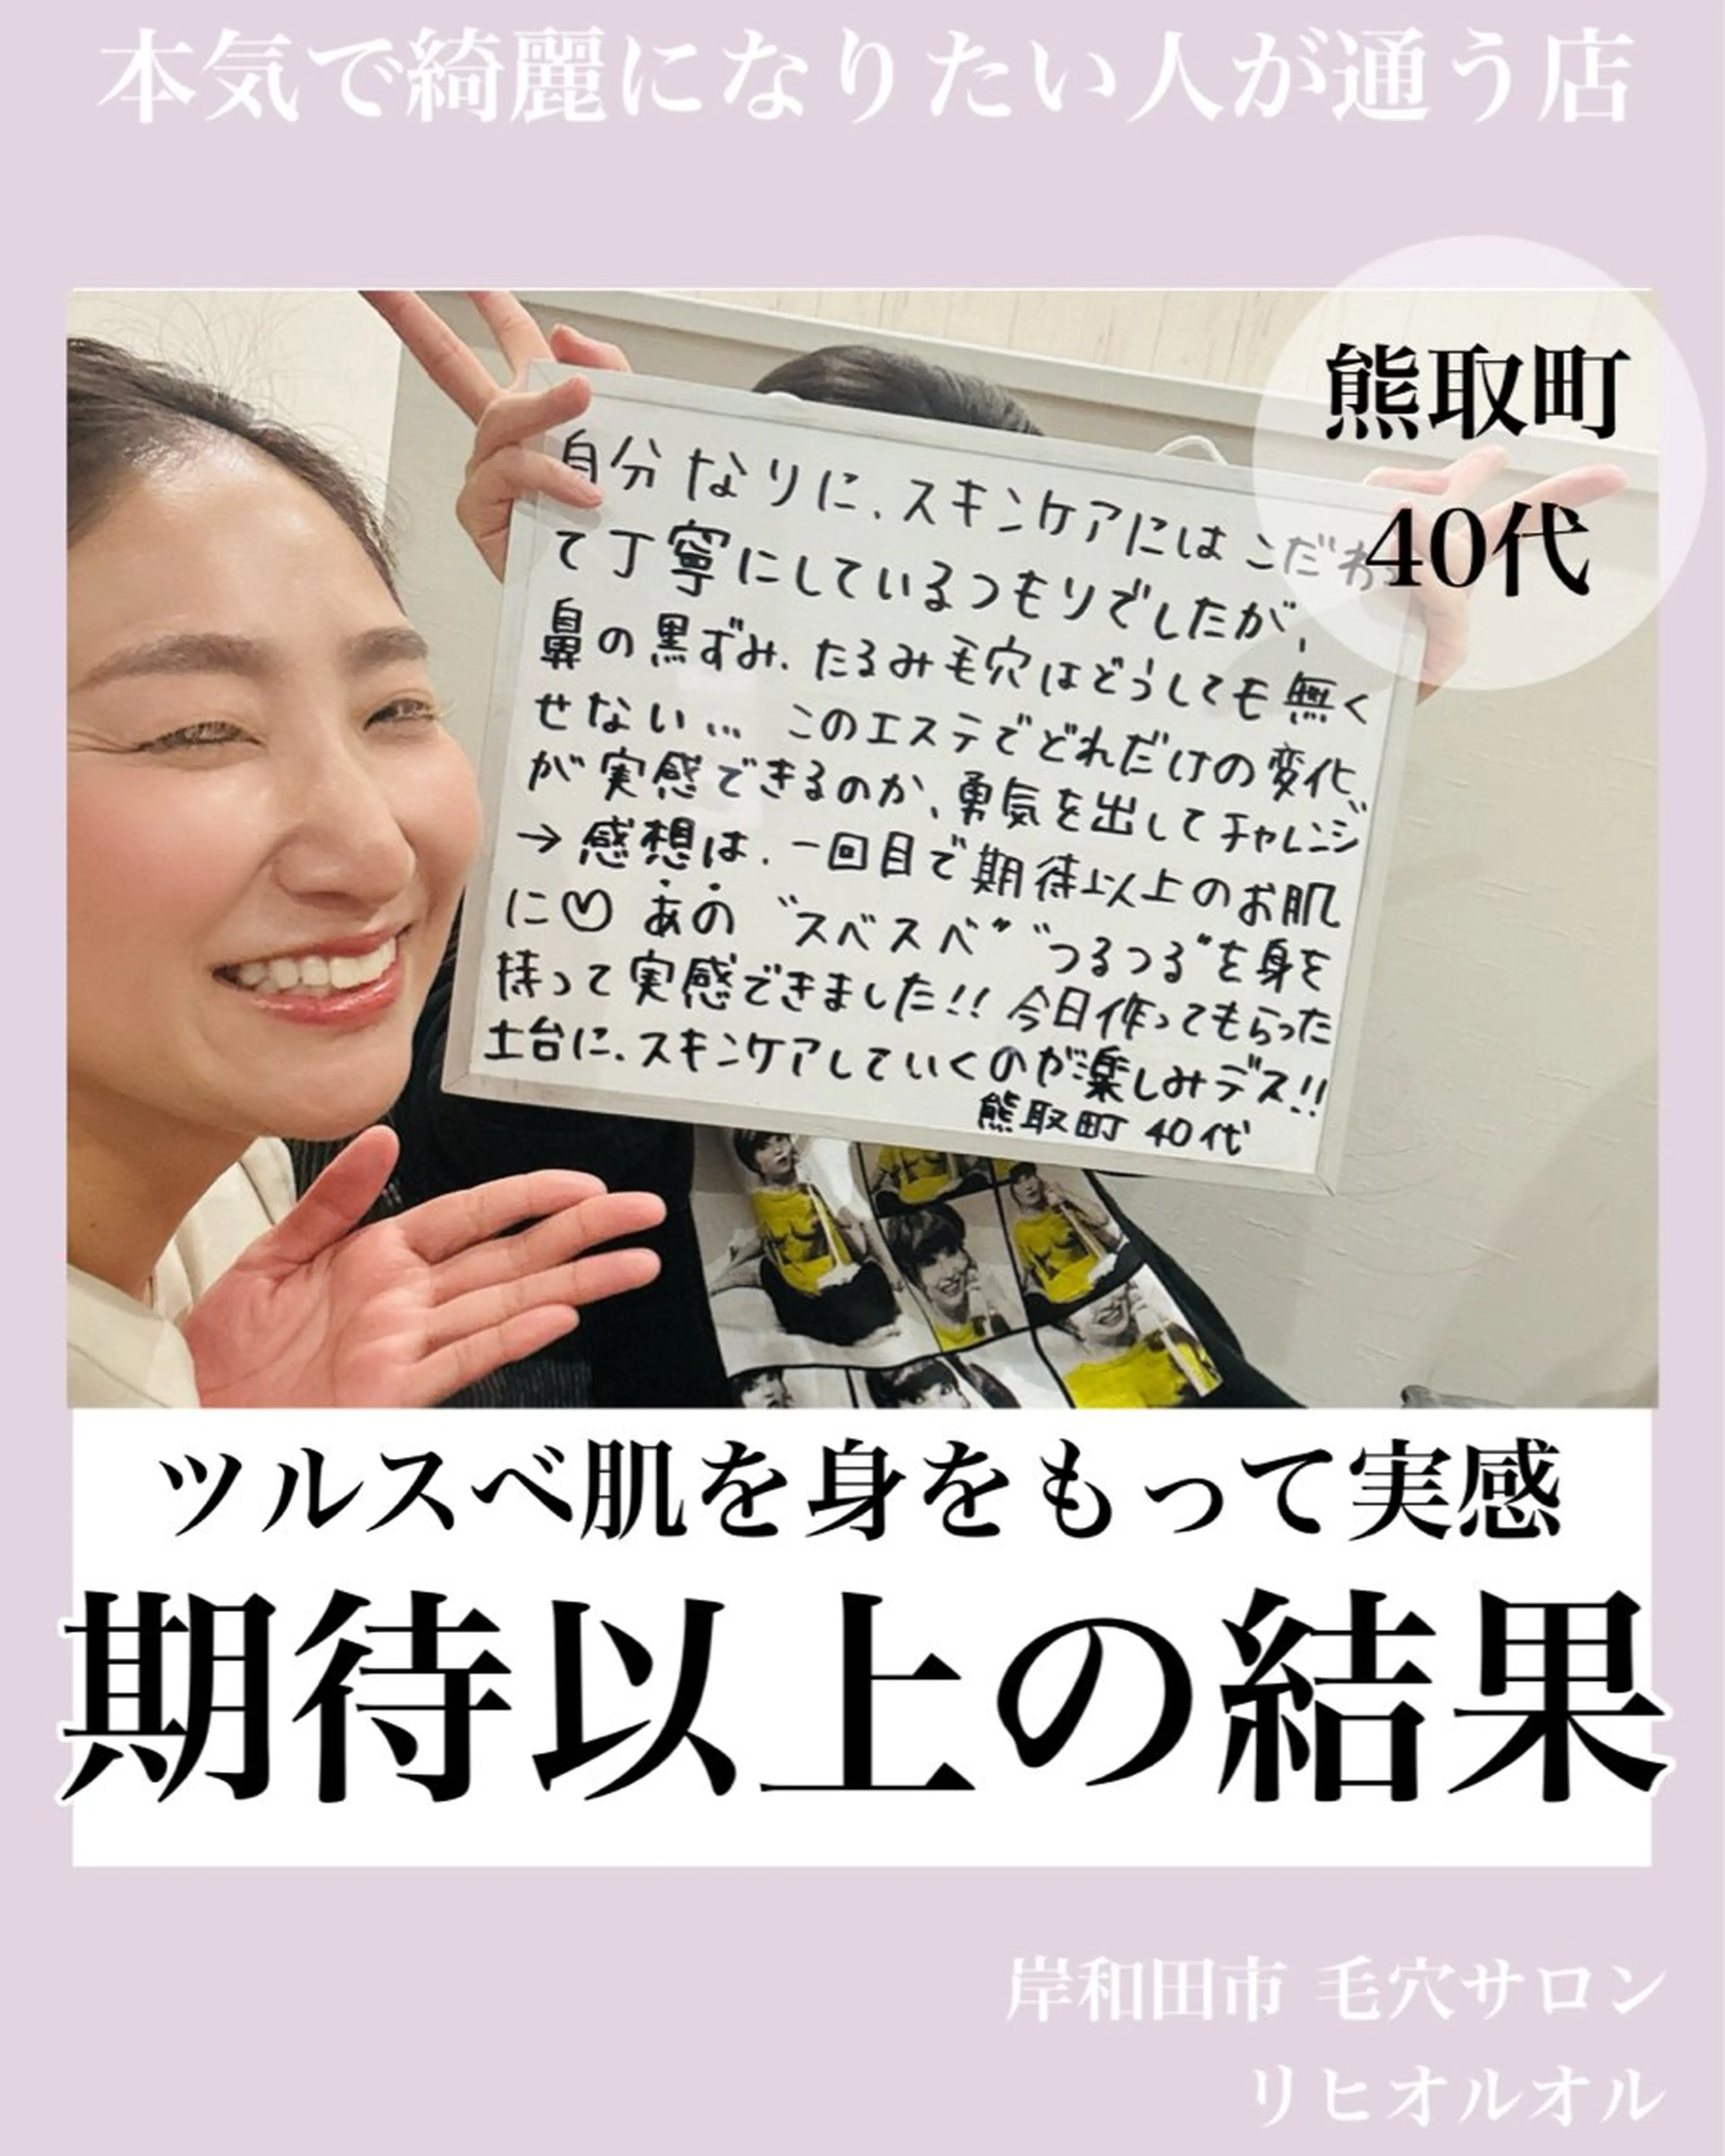 本気で綺麗になりたい人が通う店
熊取町
40代
自分なりに、スキンケアにはこだわっ
て丁寧にしているつもりでしたが、
鼻の黒ずみ、たるみ毛穴はどうしても無く
せない… このエステでどれだけの変化
が実感できるのか、勇気を出してチャレンジ
→感想は、一回目で期待以上のお肌
に♡ あの "スベスベ" "つるつる"を身を
持って実感できました!! 今日作ってもらった
土台に、スキンケアしていくのが楽しみデス!!
熊取町 40代
ツルスベ肌を身をもって実感
期待以上の結果
岸和田市 毛穴サロン
リヒオルオル